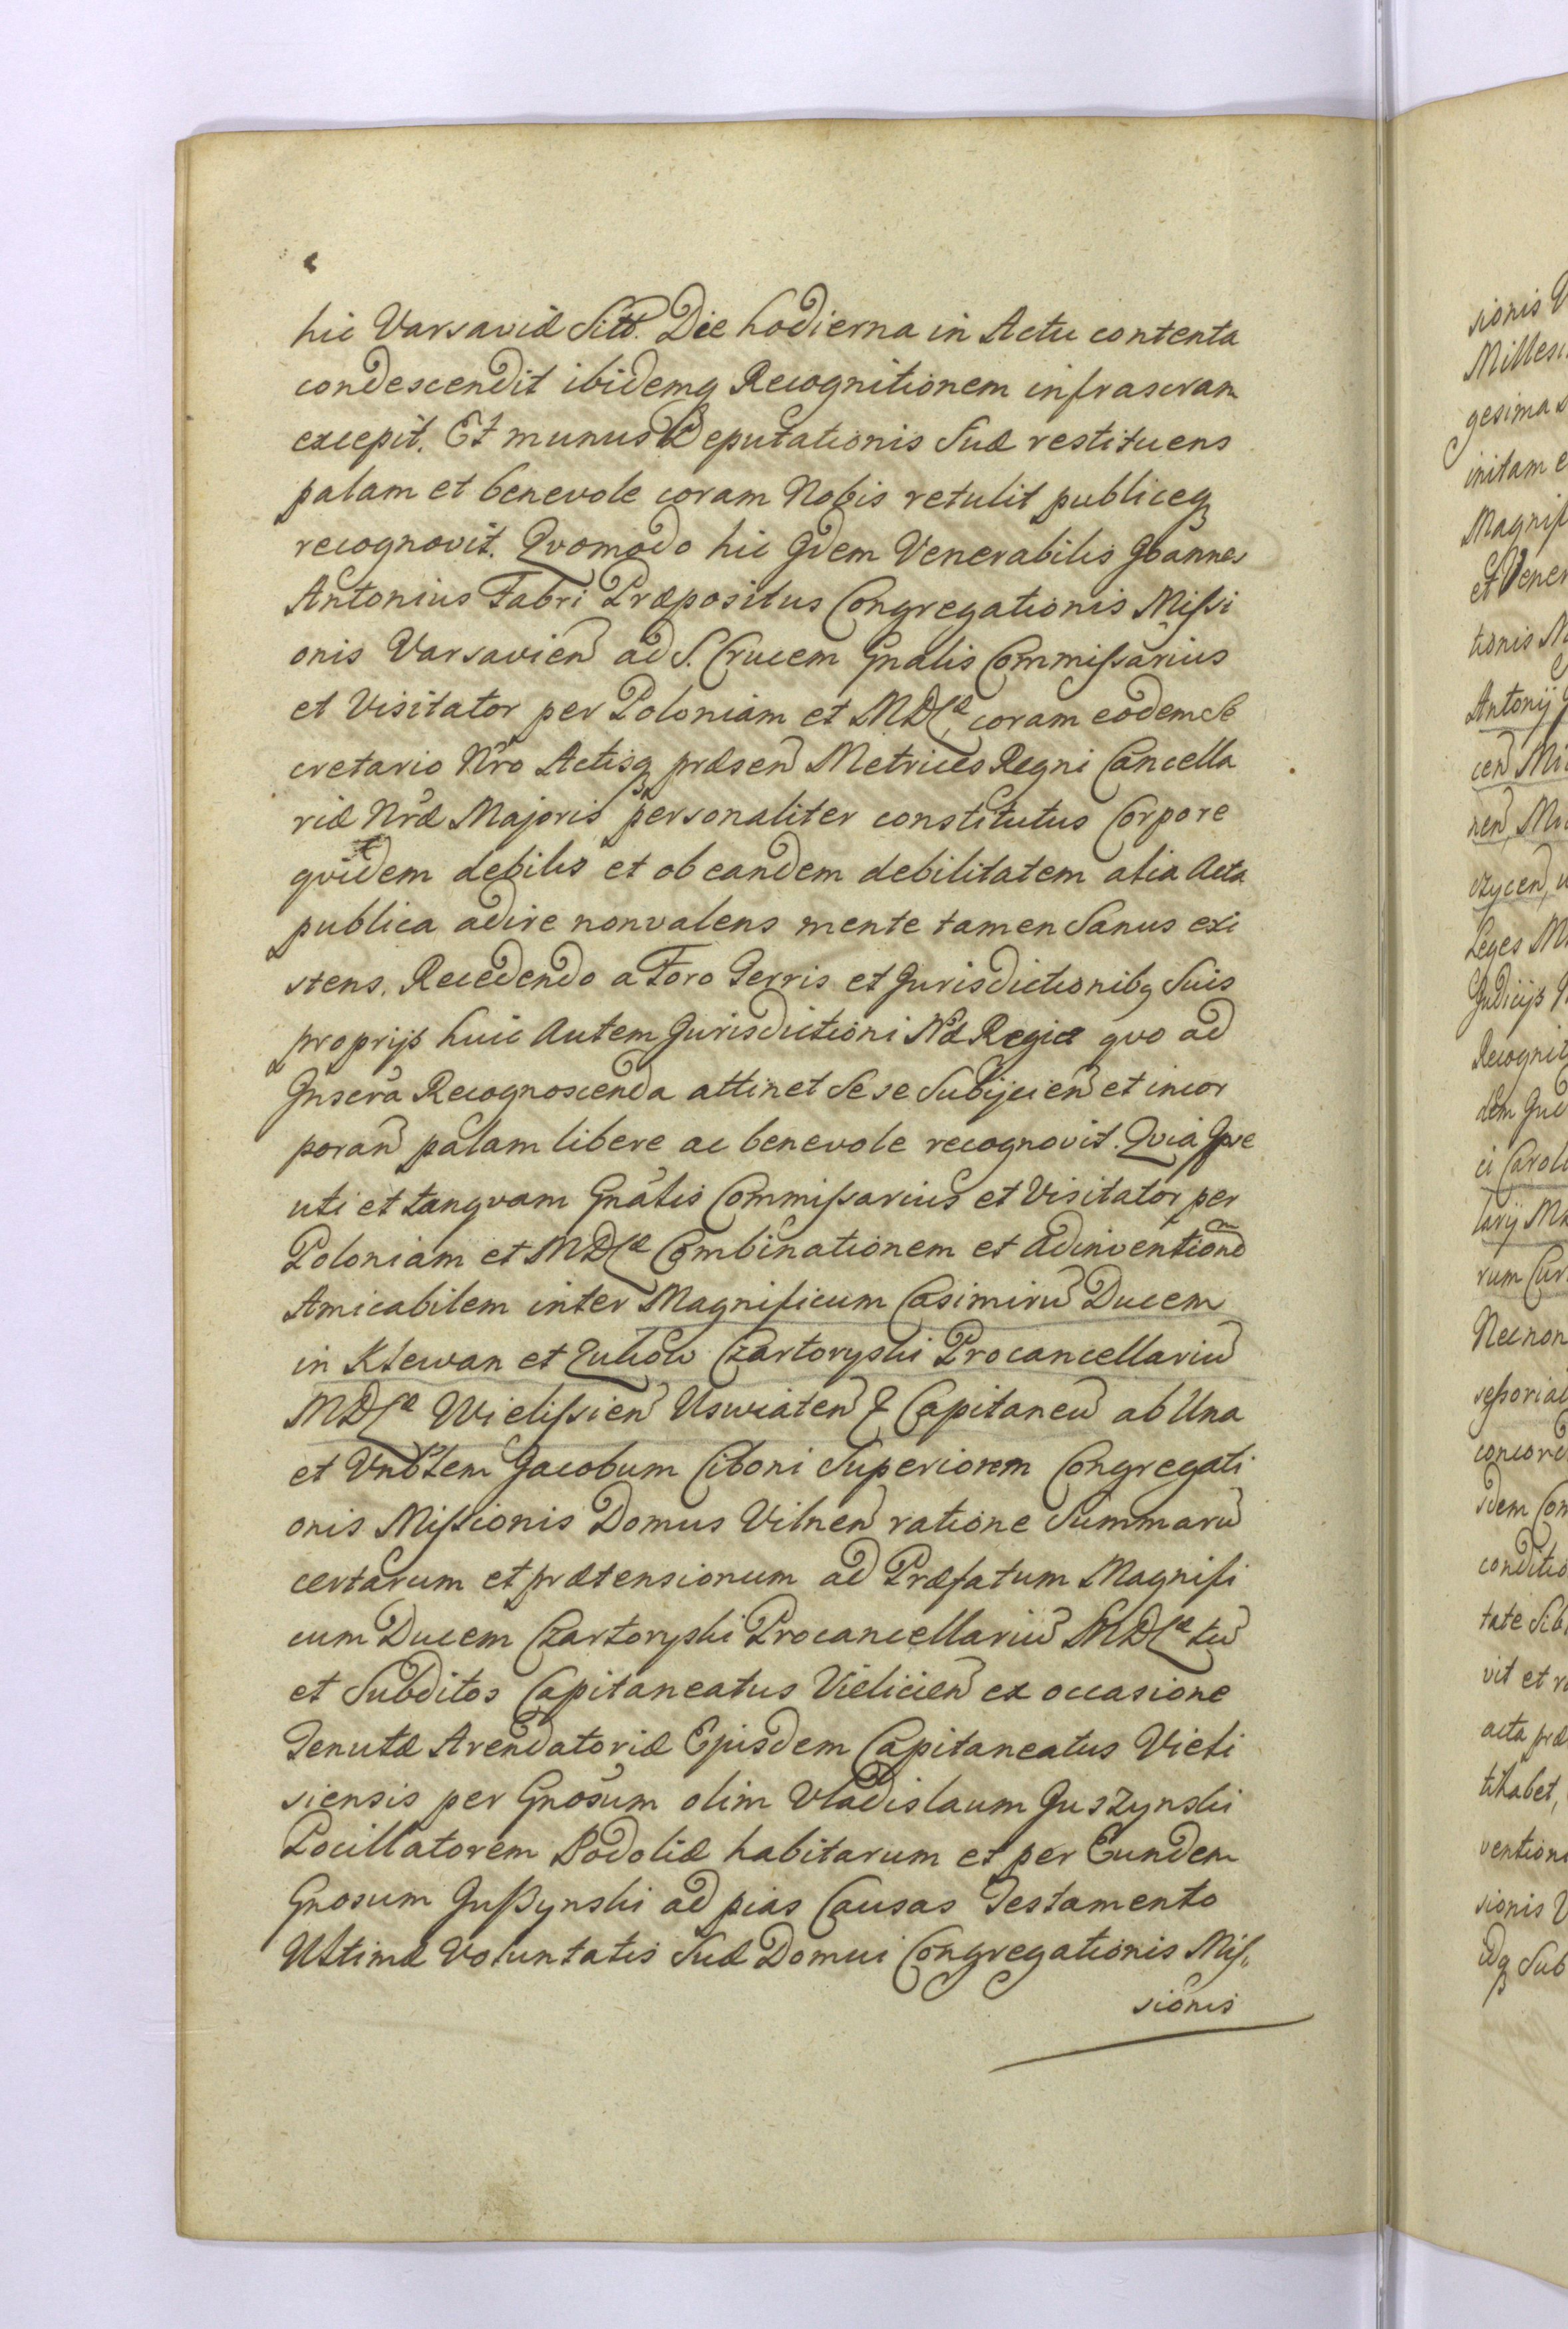 hic Varsaviæ Sitt. Die hodierna in Actu contenta
condescendit ibidemq Recognitionem infrascram
excepit. Et munus Deputationis Suæ restituens
palam et benevole coram Nobis retulit publiceq
recognovit. Qvomodo hic Idem Venerabilis Joannes
Antonius Fabri Præpositus Congregationis Missi
onis Varsavien ad S. Crucem Gnalis Commissarius
et Visitator per Poloniam et MDLæ coram eodem Se
cretario Nro Actisq præsen Metrices Regni Cancella
riæ Nræ Majoris personaliter constitutus Corpore
qvidem debilis et ob eandem debilitatem alia Acta
publica adire non valens mente tamen Sanus exi
stens. Recedendo a Foro Terris et Jurisdictionibq Suis
proprijs huic Autem Jurisdictioni Næ Regiæ qvo ad
Inscra Recognoscenda attinet Se se Subijcien et incor
poran palam libere ac benevole recognovit. Qvia Ipse
uti et tanqvam Gnalis Commissarius et Visitator per
Poloniam et MDLæ Combinationem et Adinvention
Amicabilem inter Magnificum Casimiru Ducem
in Klewan et Zukow Czartoryski Procancellariu
MDLæ Wielissien Uswiaten & Capitaneu ab Una
et Vnblem Jacobum Ciboni Superiorem Congregati
onis Missionis Domus Vilnen ratione Summaru
certarum et prætensionum ad Præfatum Magnifi
cum Ducem Czartoryski Procancellariu MDLæ tu
et Subditos Capitaneatus Vielicien ex occasione
Tenutæ Arendatoriæ Ejusdem Capitaneatus Vieli
siensis per Gnosum olim Vladislaum Guszynski
Pocillatorem Podoliæ habitarum et per Eundem
Gnosum Gußynski ad pias Causas Testamento
Ultimæ Voluntatis Suæ Domui Congregationis Mis„
sionis
sionis
Millesi
gesima
initam e
Magnif
et Vener
tionis
Antonij
cen
nen
czycen
Leges
Judicijs
Recognit
dem
ci Caroli
larij
rum Cur
Necnon
sessorial
concord
sdem Com
conditio
tate Sib
vit et
acta præ
tihabet,
ventioni
sionis
idq Sub